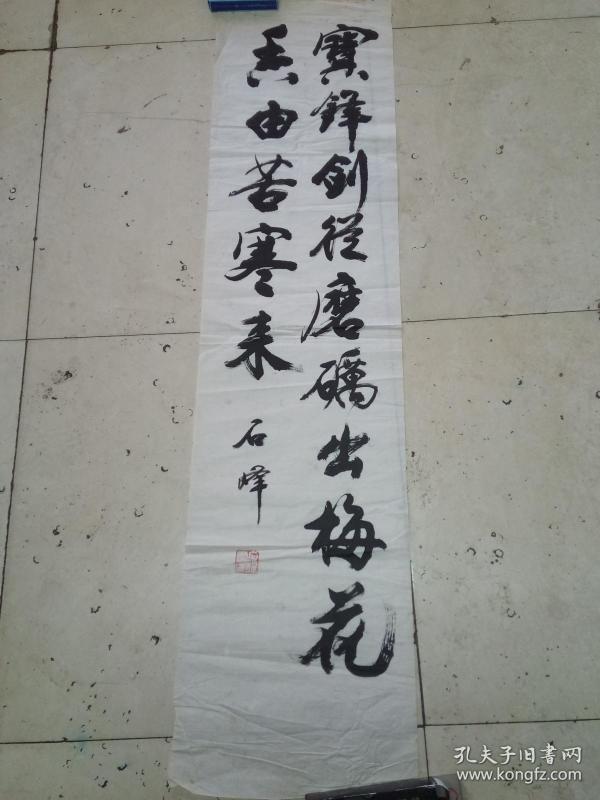 寳鋒劍從磨礪出梅花
香由苦寒来
石峰
孔夫子旧書网
www.kongfz.com